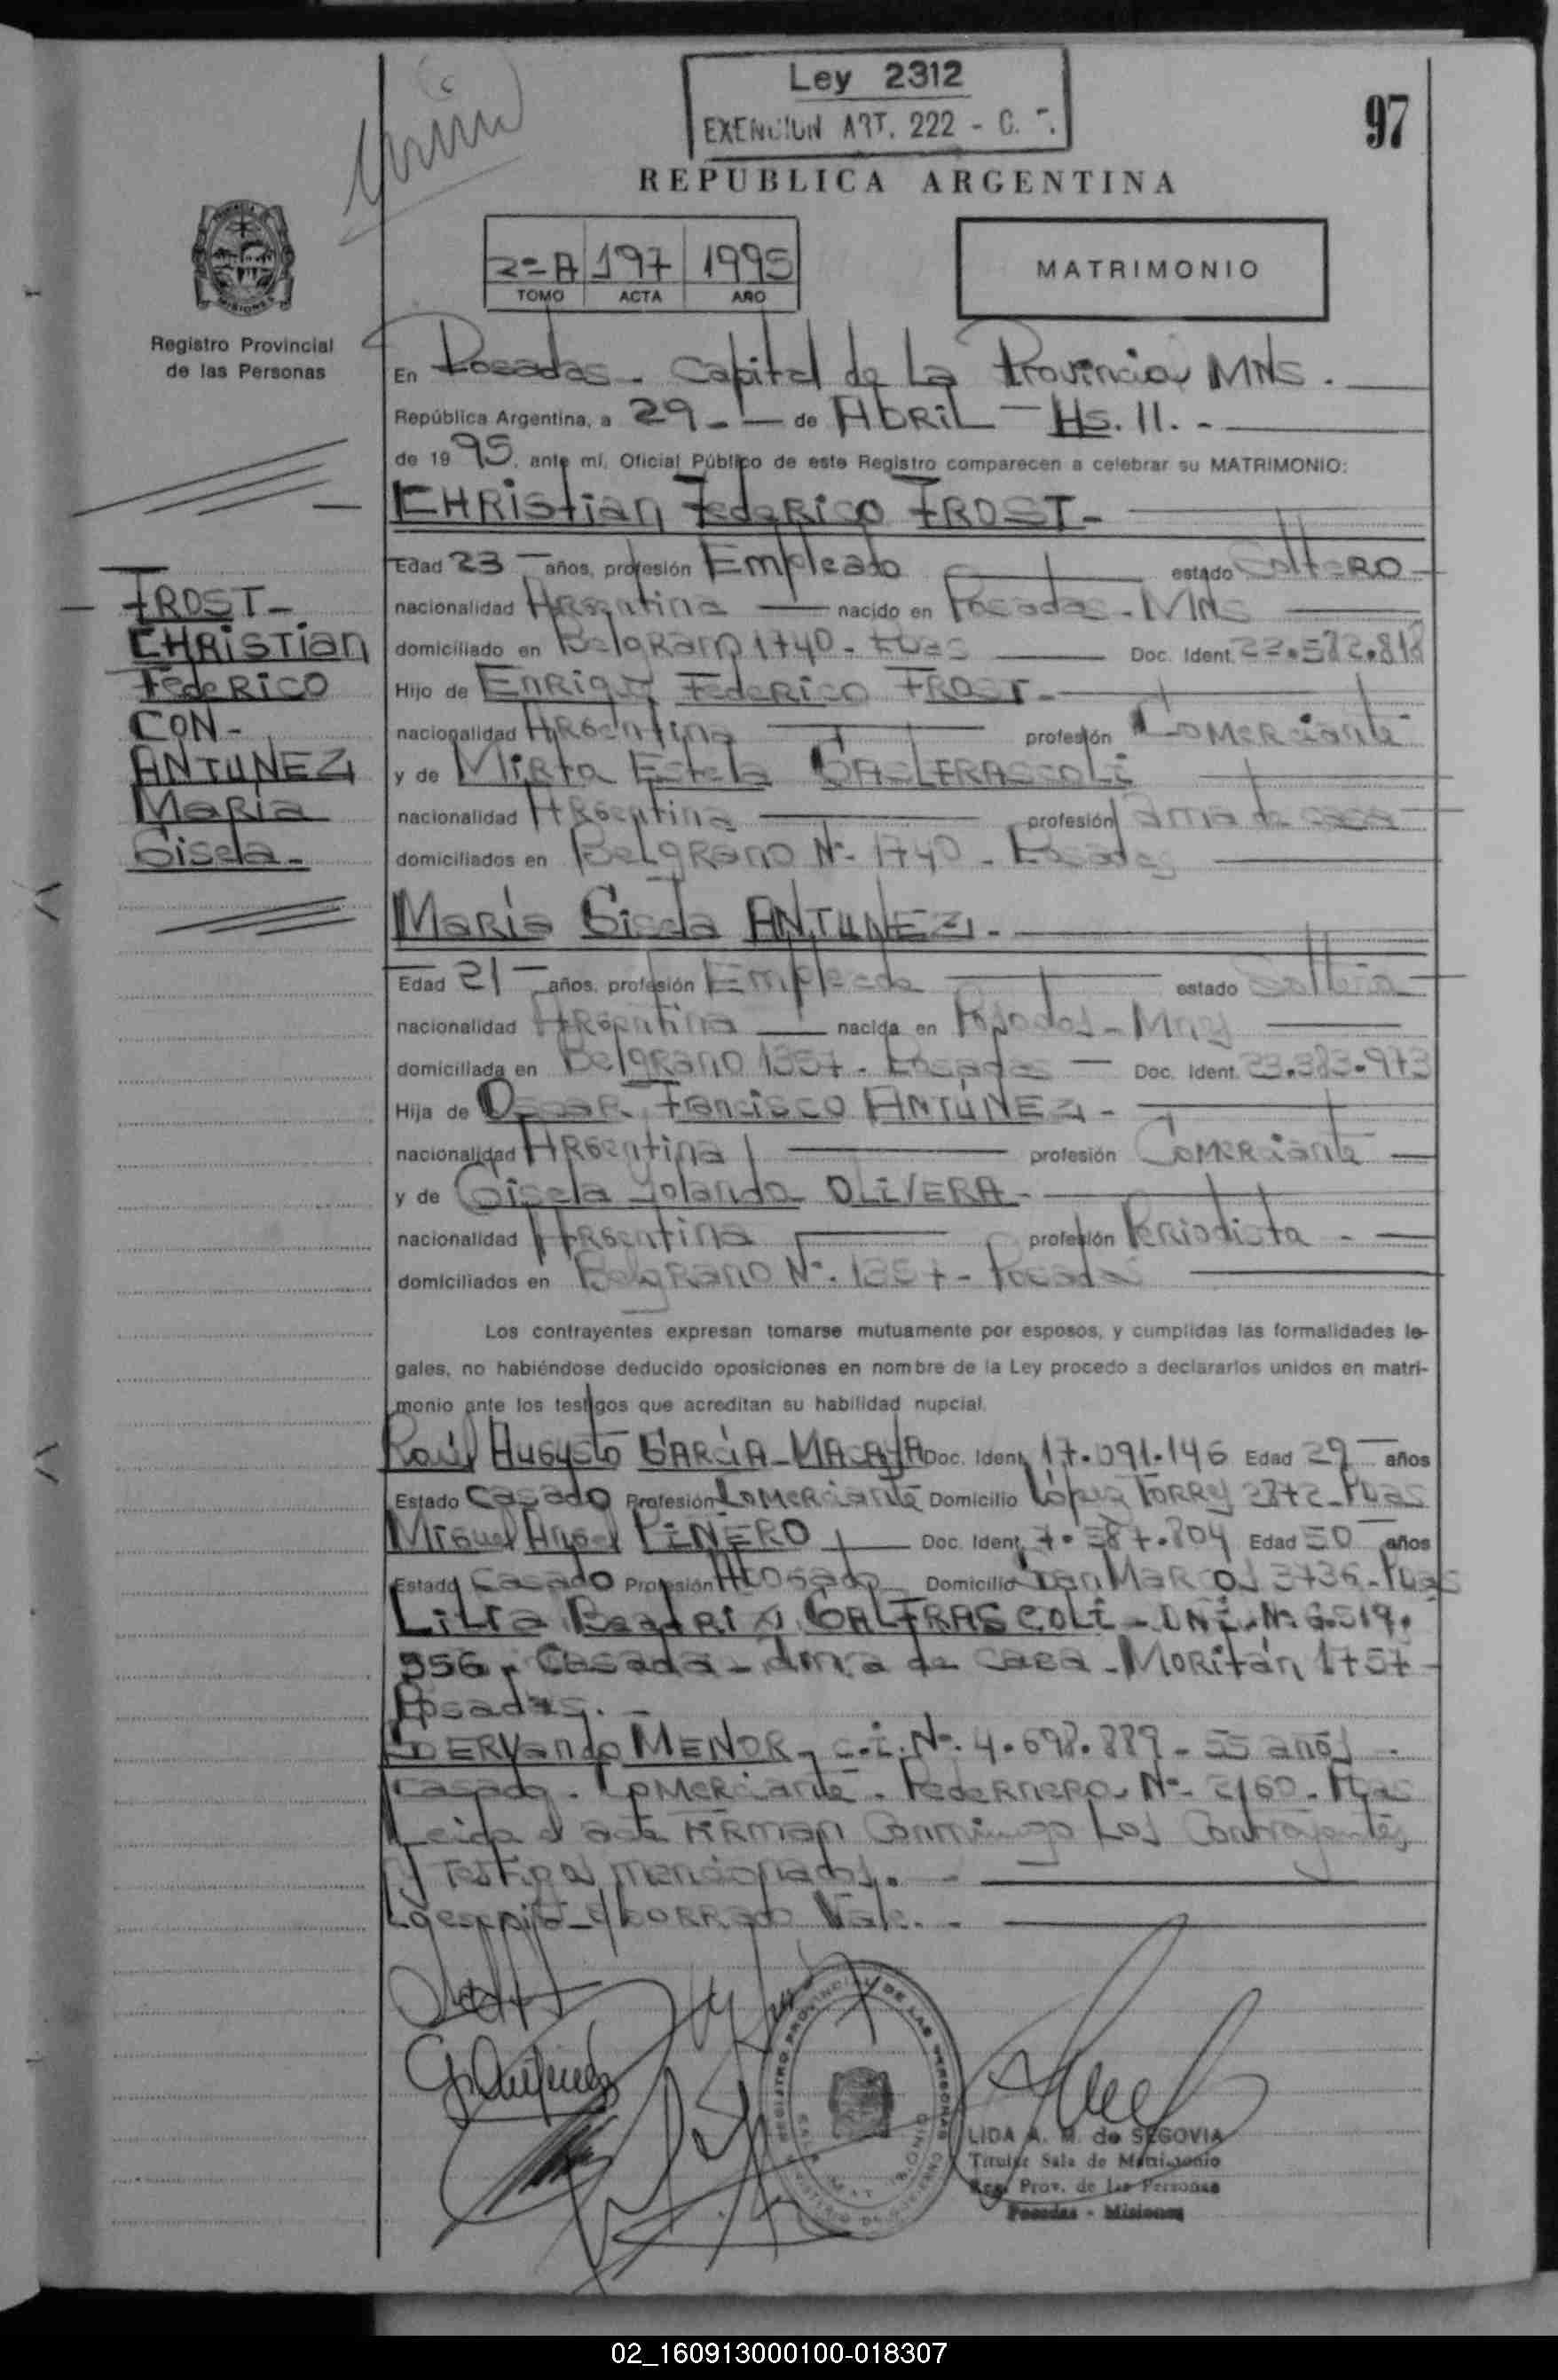 Ley 2312
EXENCION ART. 222 - C.
97
REPUBLICA ARGENTINA
2º-A 197 1995
TOMO ACTA AÑO
MATRIMONIO
Registro Provincial
de las Personas
En Posadas - Capital de La Provincia MNS. -
República Argentina, a 29 - - de ABRIL - Hs. 11. -
de 1995, ante mí, Oficial Público de este Registro comparecen a celebrar su MATRIMONIO:
CHRistian FedeRico FROST -
Edad 23 - años, profesión Empleado estado SolteRO -
nacionalidad ARgentina - nacido en Posadas - MNS
domiciliado en BelgRano 1740 - Pdas Doc. Ident. 22.582.818
Hijo de ENRique FedeRico FROST -
nacionalidad ARgentina profesión ComeRciante
y de MiRta Estela GALFRASCOLi
nacionalidad ARgentina profesión ama de casa
domiciliados en BelgRano Nº 1740 - Posadas
FROST -
CHRiSTian
FedeRiCO
CON -
ANTUNEZ
MaRia
Gisela -
MaRía Gisela ANTUNEZ. -
Edad 21 - años, profesión Empleada estado Soltera -
nacionalidad ARgentina nacida en Posadas - Mnes
domiciliada en BelgRano 1357 - Posadas - Doc. Ident. 23.383.973
Hija de OscaR FRancisco ANTUNEZ -
nacionalidad ARgentina profesión ComeRciante
y de Gisela Yolanda OLiVERA -
nacionalidad ARgentina profesión PeRiodista -
domiciliados en BelgRano Nº. 1357 - Posadas
Los contrayentes expresan tomarse mutuamente por esposos, y cumplidas las formalidades le-
gales, no habiéndose deducido oposiciones en nombre de la Ley procedo a declararlos unidos en matri-
monio ante los testigos que acreditan su habilidad nupcial.
Raúl AUGUSTO GARCiA - MACAYA Doc. Ident. 17.091.146 Edad 29 - años
Estado Casado Profesión ComeRciante Domicilio López TORRes 2872 - Pdas
Miguel Angel PiÑERO Doc. Ident. 7.587.804 Edad 50 años
Estado Casado Profesión Abogado Domicilio San MaRcos 3736 - Pdas
LiLia BeatRiz GALFRASCOLi - DNi. Nº 6.519.
956 - Casada - ama de casa - MoRitán 1757 -
Posadas. -
SERVando MENOR - c.i. Nº. 4.698.889 - 55 años -
Casado - ComeRciante - PedeRneRa Nº 2160 - Pdas
Leida el acta FiRman Conmigo Los Contrayentes
y Testigos mencionados. -
Lo escrito s/ boRRado Vale. -
REGISTRO PROVINCIAL DE LAS PERSONAS
LIDA A. M. de SEGOVIA
Titular Sala de Matrimonio
Reg. Prov. de las Personas
Posadas - Misiones
02_160913000100-018307